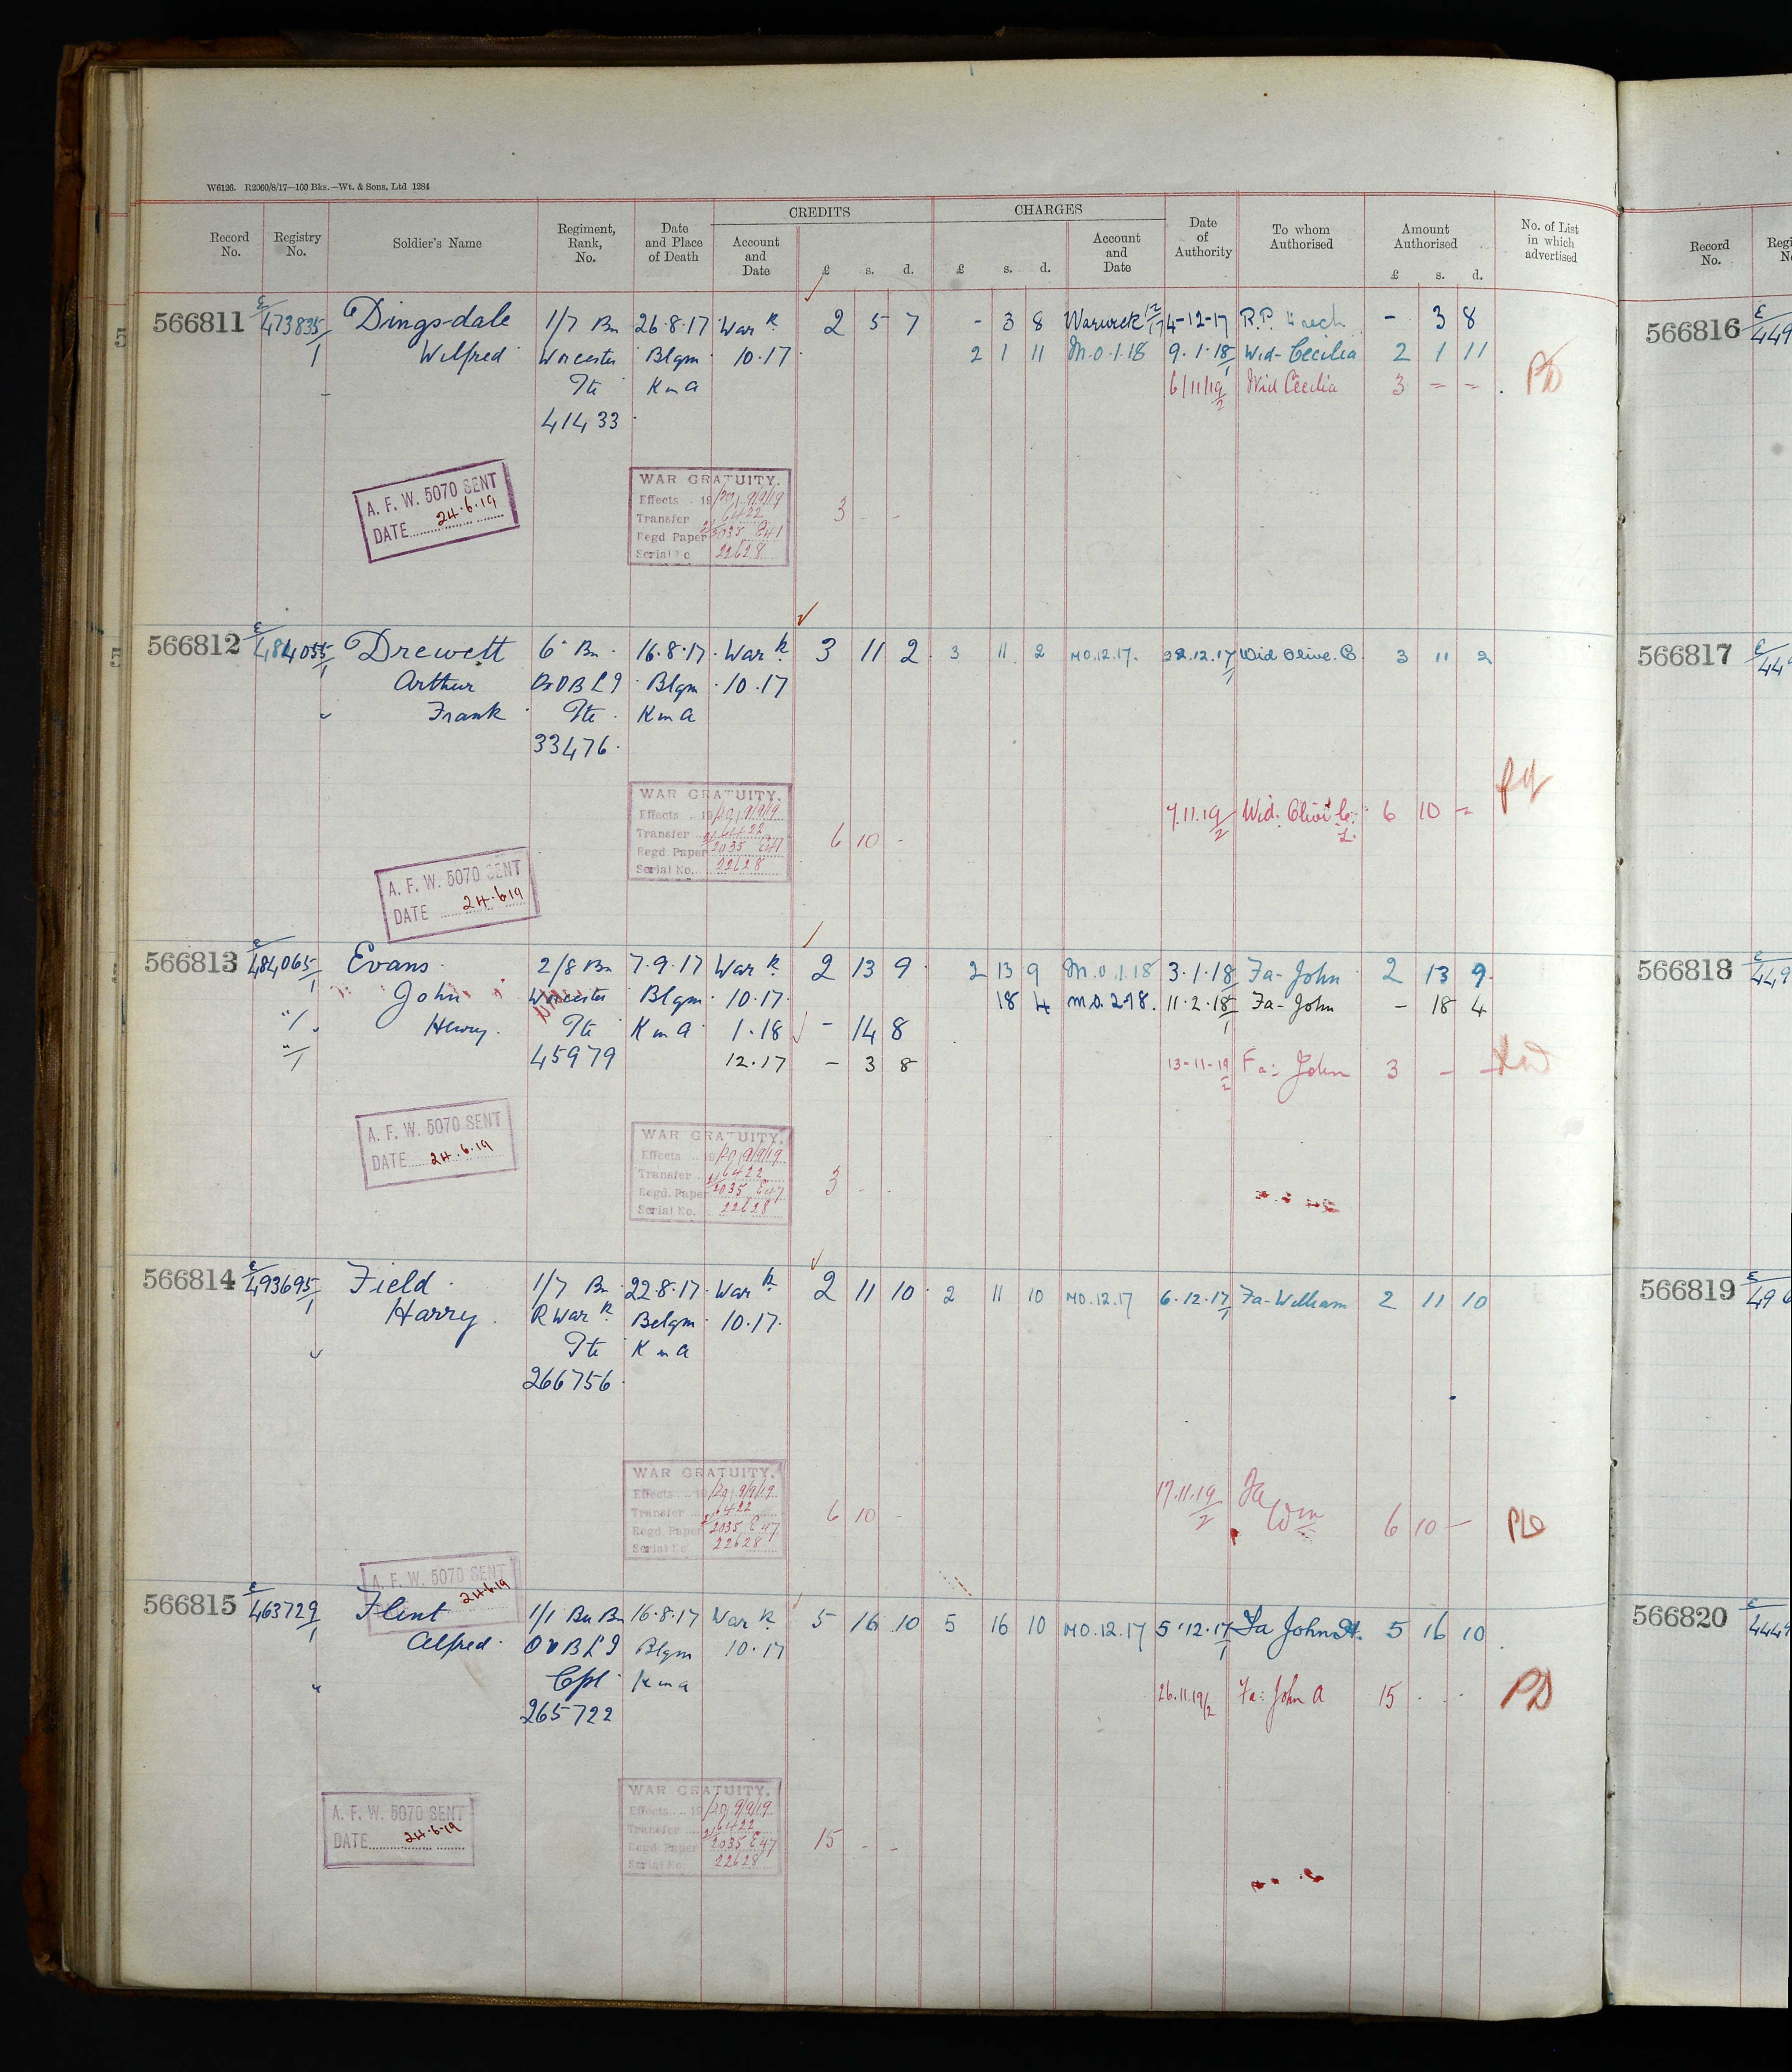 W6126. R2060/8/17—100 Bks.—Wt. & Sons, Ltd 1284
Record No. Registry No. Soldier's Name Regiment, Rank, No. Date and Place of Death CREDITS Account and Date £ s. d. CHARGES £ s. d. Account and Date Date of Authority To whom Authorised Amount Authorised £ s. d. No. of List in which advertised
Record No.
566811 E/473835/1 Dingsdale 1/7 Bn 26.8.17 War k 2 5 7 - 3 8 Warwick 12/17 4-12-17 R.P. - 3 8
Wilfred Worcester Blgm 10.17 2 1 11 M.O.1.18 9.1.18/1 Wid- Cecilia 2 1 11
Pte K in a 6/11/19/2 Wid Cecilia 3 = =
41433
A. F. W. 5070 SENT
DATE 24.6.19
WAR GRATUITY.
Effects 19/20 9/9/19
Transfer 6422 3 - -
Regd Paper 2035 E47
Serial No 22628
566812 E/484055/1 Drewett 6 Bn 16.8.17 War k 3 11 2 3 11 2 MO.12.17. 28.12.17/1 Wid Olive. B. 3 11 2
Arthur Blgm 10.17
Frank Pte K in a
33476
WAR GRATUITY.
Effects 19/20 9/9/19 7.11.19/2 Wid: 6 10 =
Transfer 6422 6 10 -
Regd. Paper 2035 E47
Serial No. 22628
A. F. W. 5070 SENT
DATE 24.6.19
566813 E/484065/1 Evans 2/8 Bn 7.9.17 War k 2 13 9 2 13 9 M.O.1.18 3.1.18/1 Fa- John 2 13 9
John Worcester Blgm 10.17 18 4 MO.2.18. 11.2.18/1 Fa- John - 18 4
Henry Pte K in a 1.18 - 14 8
45979 12.17 - 3 8 13-11-19/2 Fa: John 3 - -
A. F. W. 5070 SENT
DATE 24.6.19
WAR GRATUITY.
Effects 19/20 9/9/19
Transfer 6422 3 - -
Regd. Paper 2035 E47
Serial No. 22628
566814 E/493695/1 Field 1/7 Bn 22.8.17 War k 2 11 10 2 11 10 MO.12.17 6.12.17/1 Fa- William 2 11 10
Harry R War k Belgm 10.17
Pte K in a
266756
WAR GRATUITY. 17.11.19/2 Fa
Effects 19/20 9/9/19 Wm 6 10 -
Transfer 6422 6 10 -
Regd. Paper 2035 E47
Serial No 22628
A. F. W. 5070 SENT
24.6.19
566815 E/463729/1 Flint 1/1 Bu Bn 16.8.17 War k 5 16 10 5 16 10 MO.12.17 5.12.17/1 Fa John A. 5 16 10
Alfred O & B L I Blgm 10.17
Cpl K in a 26.11.19/2 Fa: John A 15 . .
265722 PD
A. F. W. 5070 SENT
DATE 24.6.19
WAR GRATUITY.
Effects 19/20 9/9/19
Transfer 6422 15 - -
Regd Paper 2035 E47
Serial No. 22628
566816
566817
566818
566819
566820